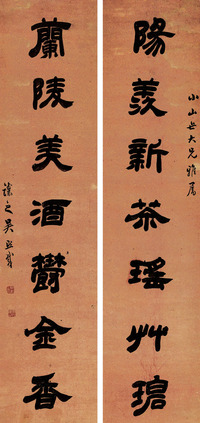 小山世大兄雅屬
陽羨新茶瑤艸碧
蘭陵美酒鬱金香
讓之吳熙載